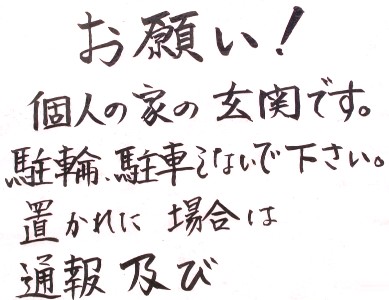 お願い!
個人の家の玄関です。
駐輪、駐車しないで下さい。
置かれた場合は
通報及び